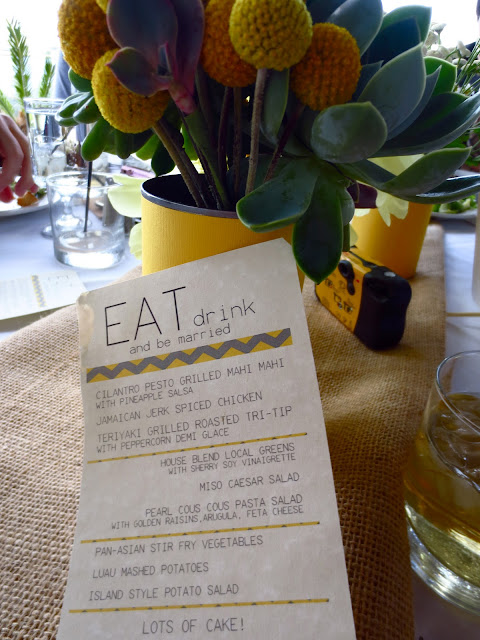 EAT drink
and be married
CILANTRO PESTO GRILLED MAHI MAHI
WITH PINEAPPLE SALSA
JAMAICAN JERK SPICED CHICKEN
TERIYAKI GRILLED ROASTED TRI-TIP
WITH PEPPERCORN DEMI GLACE
HOUSE BLEND LOCAL GREENS
WITH SHERRY SOY VINAIGRETTE
MISO CAESAR SALAD
PEARL COUS COUS PASTA SALAD
WITH GOLDEN RAISINS,ARUGULA, FETA CHEESE
PAN-ASIAN STIR FRY VEGETABLES
LUAU MASHED POTATOES
ISLAND STYLE POTATO SALAD
LOTS OF CAKE!